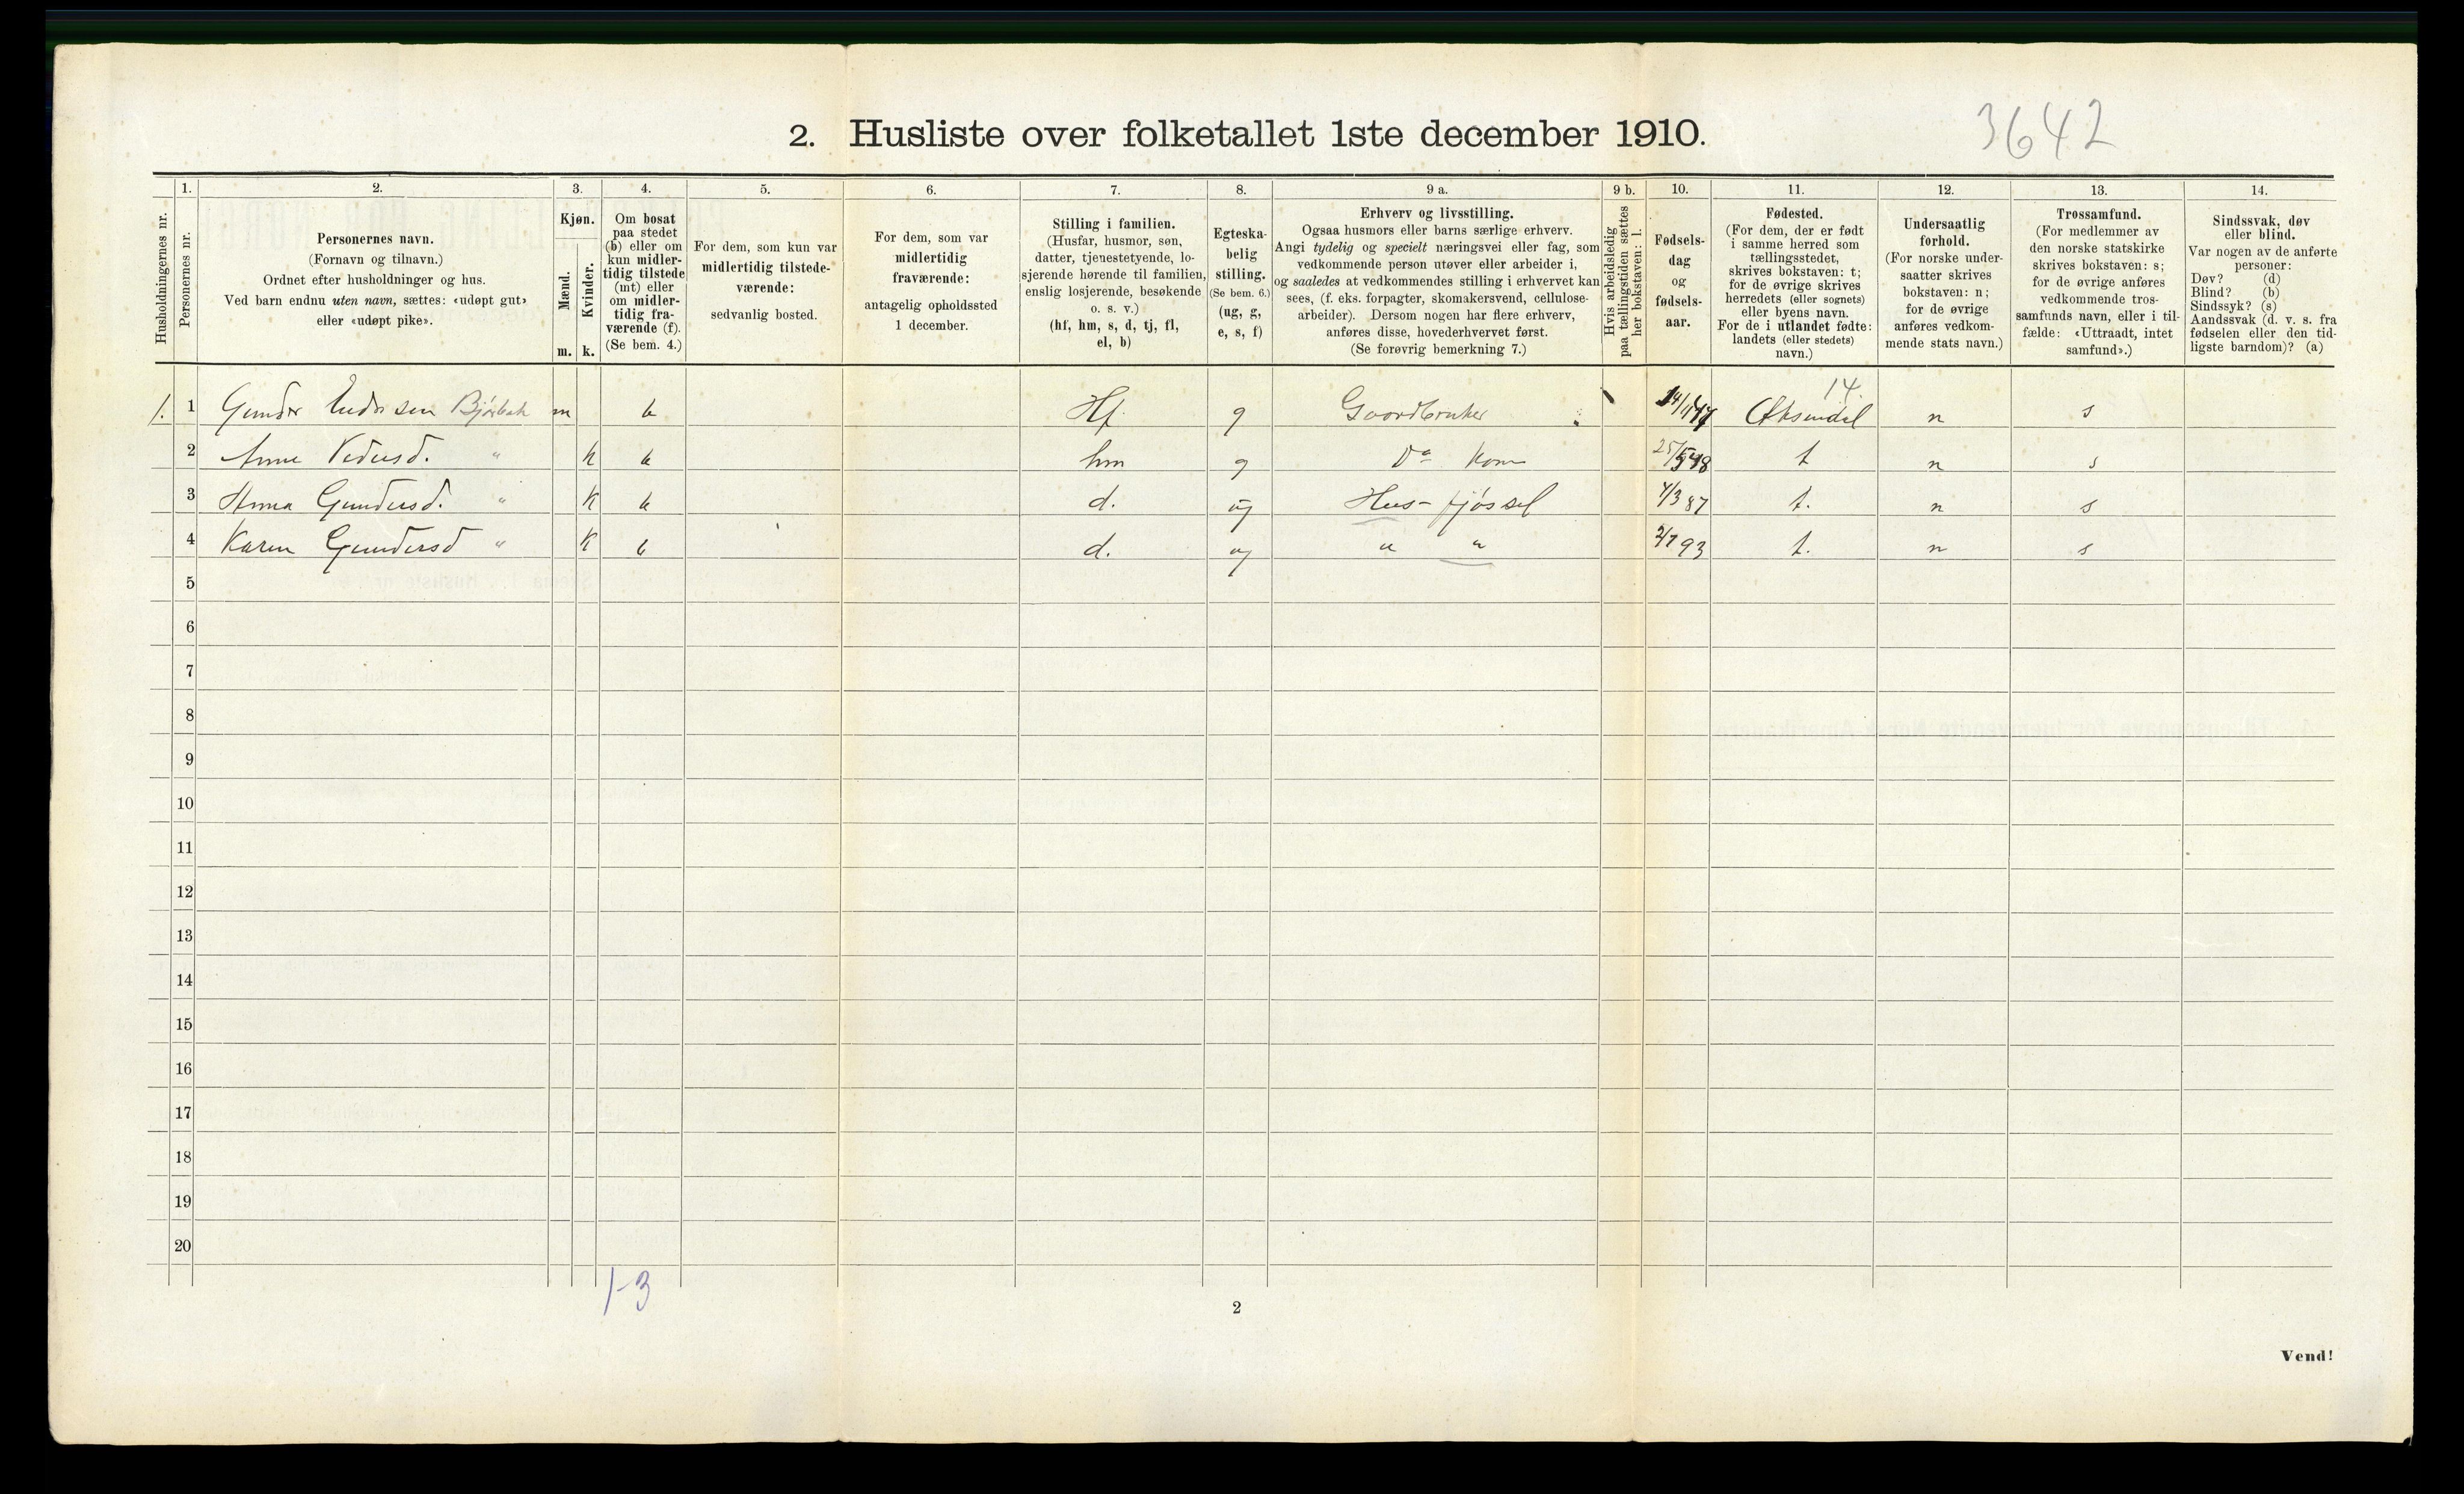 3642
2. Husliste over folketallet 1ste december 1910.
1. 2. 3. 4. 5. 6. 7. 8. 9 a. 9 b. 10. 11. 12. 13. 14.
Husholdningernes nr.
Personernes nr.
Personernes navn.
(Fornavn og tilnavn.)
Ordnet efter husholdninger og hus.
Ved barn endnu uten navn, sættes: «udøpt gut»
eller «udøpt pike».
Kjøn.
Mænd.
Kvinder.
m. k.
Om bosat
paa stedet
(b) eller om
kun midler-
tidig tilstede
(mt) eller
om midler-
tidig fra-
værende (f).
(Se bem. 4.)
For dem, som kun var
midlertidig tilstede-
værende:
sedvanlig bosted.
For dem, som var
midlertidig
fraværende:
antagelig opholdssted
1 december.
Stilling i familien.
(Husfar, husmor, søn,
datter, tjenestetyende, lo-
sjerende hørende til familien,
enslig losjerende, besøkende
o. s. v.)
(hf, hm, s, d, tj, fl,
el, b)
Egteska-
belig
stilling.
(Se bem. 6.)
(ug, g,
e, s, f)
Erhverv og livsstilling.
Ogsaa husmors eller barns særlige erhverv.
Angi tydelig og specielt næringsvei eller fag, som
vedkommende person utøver eller arbeider i,
og saaledes at vedkommendes stilling i erhvervet kan
sees, (f. eks. forpagter, skomakersvend, cellulose-
arbeider). Dersom nogen har flere erhverv,
anføres disse, hovederhvervet først.
(Se forøvrig bemerkning 7.)
Hvis arbeidsledig
paa tællingstiden sættes
her bokstaven: l.
Fødsels-
dag
og
fødsels-
aar.
Fødested.
(For dem, der er født
i samme herred som
tællingsstedet,
skrives bokstaven: t;
for de øvrige skrives
herredets (eller sognets)
eller byens navn.
For de i utlandet fødte:
landets (eller stedets)
navn.)
Undersaatlig
forhold.
(For norske under-
saatter skrives
bokstaven: n;
for de øvrige
anføres vedkom-
mende stats navn.)
Trossamfund.
(For medlemmer av
den norske statskirke
skrives bokstaven: s;
for de øvrige anføres
vedkommende tros-
samfunds navn, eller i til-
fælde: «Uttraadt, intet
samfund».)
Sindssvak, døv
eller blind.
Var nogen av de anførte
personer:
Døv? (d)
Blind? (b)
Sindssyk? (s)
Aandssvak (d. v. s. fra
fødselen eller den tid-
ligste barndom)? (a)
14.
1. 1 Gunder m b Hf. g Gaardbruker n s
2 Anne k b hm g Do Kone t n s
3 Anna Gundersd. " k b d. ug Hus- fjøssel 4/3 87 t. n s
4 Karen Gundersd " k b d. ug " " 2/7 93 t. n s
5
6
7
8
9
10
11
12
13
14
15
16
17
18
19
20
1-3
2
Vend!